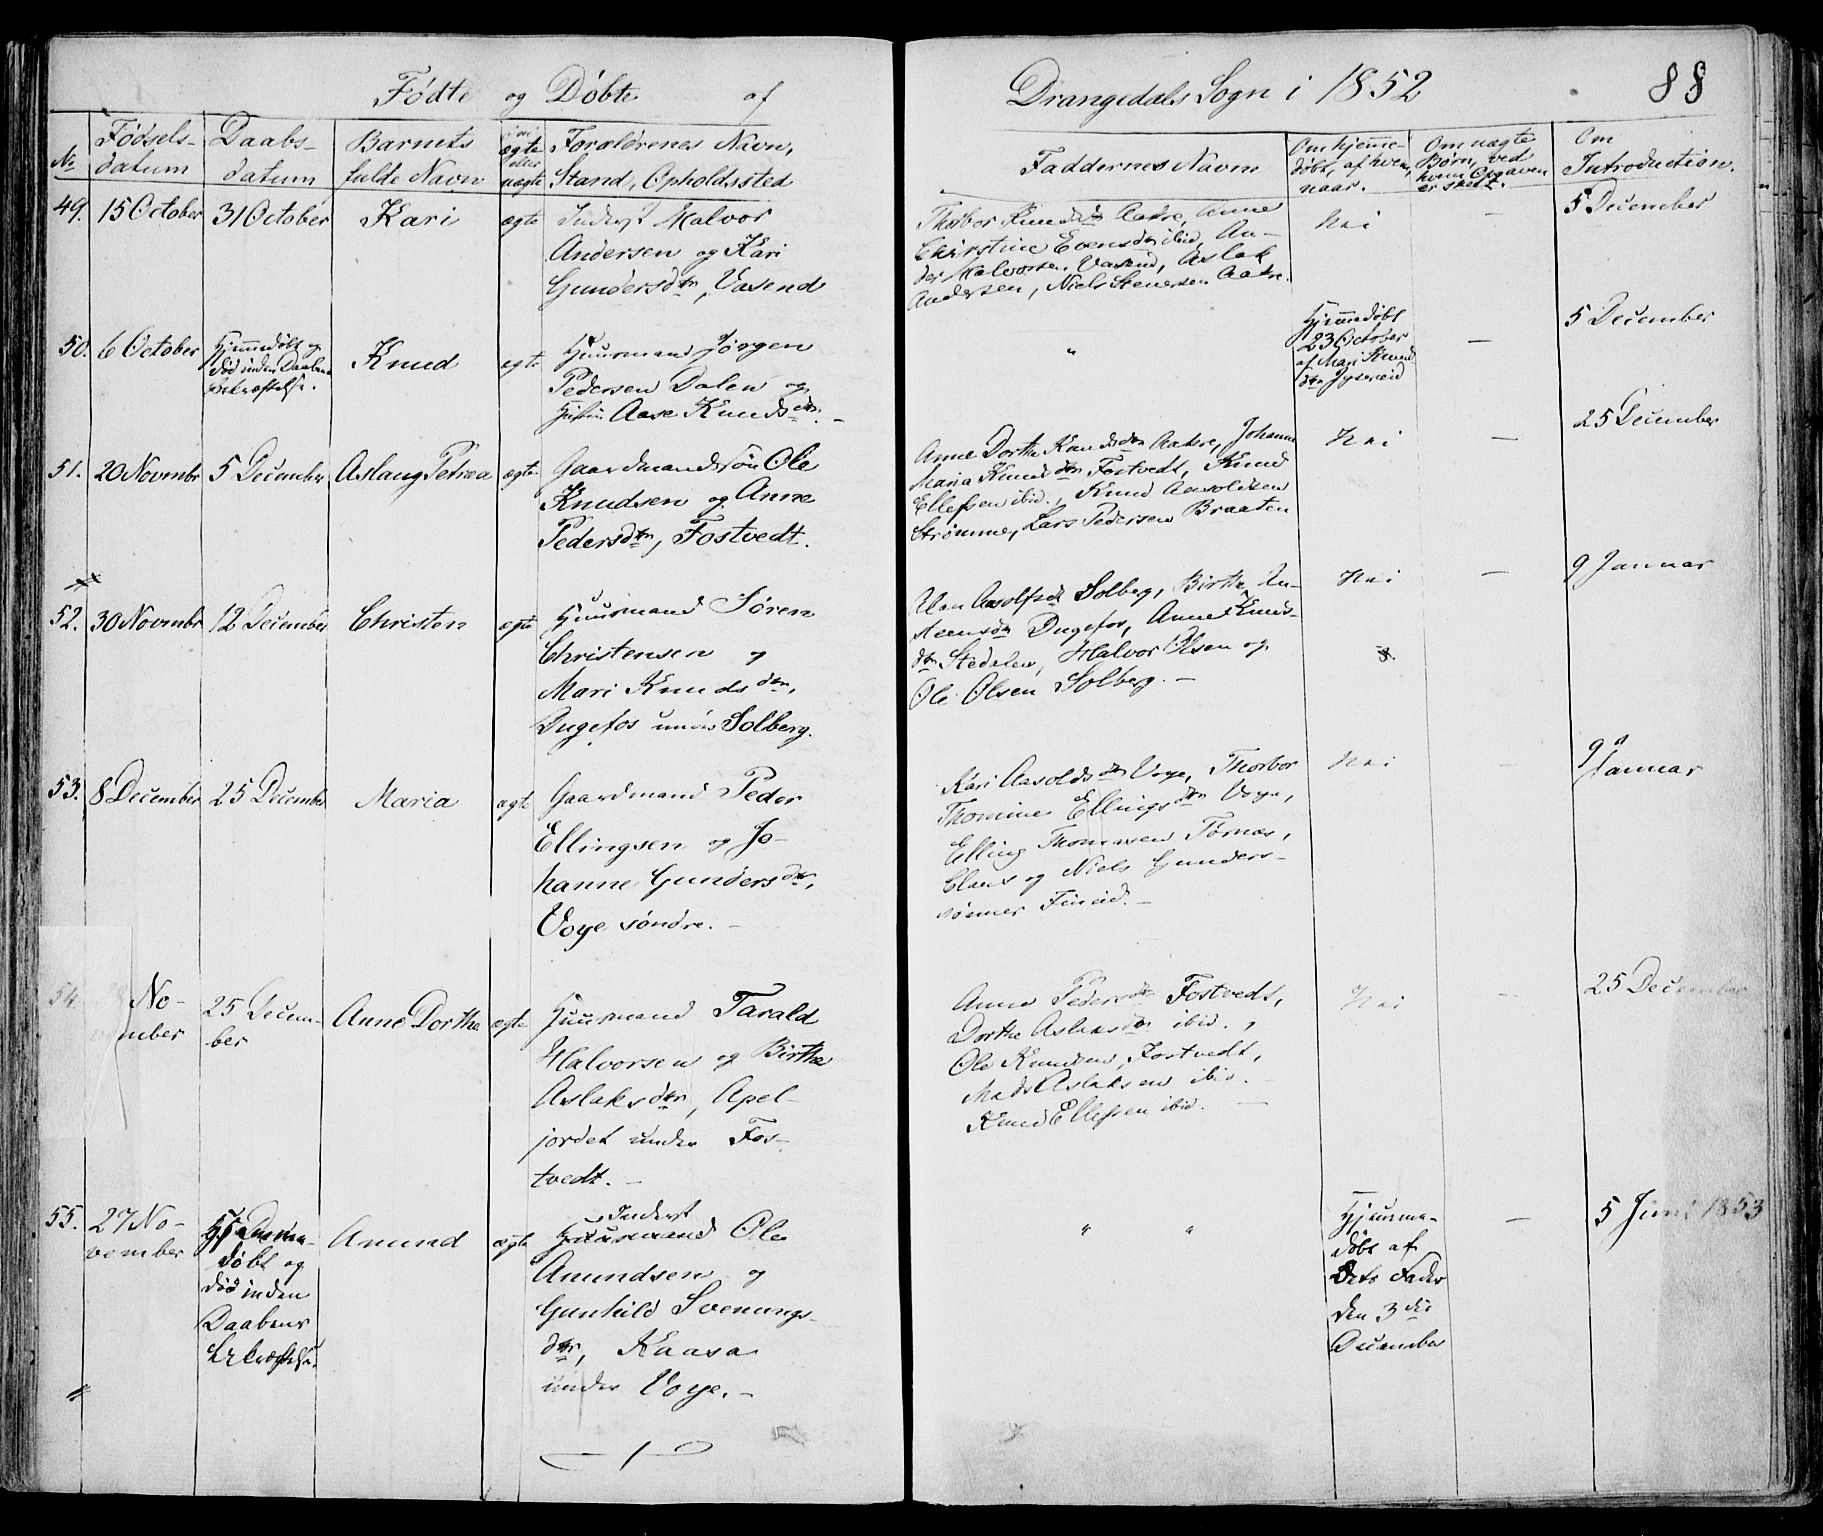 Fødte og Døbte af
Drangedals Sogn i 1852
88
No
Fødsels-
datum
Daabs-
datum
Barnets
fulde Navn
ægte
eller
uægte
Forældrenes Navn,
Stand, Opholdssted
Faddernes Navne
Om hjemme-
døbt, af hvem,
naar.
Om uægte
Børn, ved
hvem Opgaven
er skeet.
Om
Introduction.
49.
15 October
31 October
Kari
ægte
Inderst Halvor
Andersen og Kari
Gundersdtr, Vasend
Thorbor Knudsdtr Aakre, Anne
Christine Evensdtr ibid, An-
ders Halvorsen Vasend, Aslak
Andersen, Niels Stenersen Aakre.
Nei
-
5 December
50.
6 October
Hjemmedøbt og
død inden Daabens
Bekræftelse.
Knud
ægte
Huusmand Jørgen
Pedersen Dalen og
Hustru Aase Knudsdtr. -
"
Hjemmedøbt
23 October
af Mari Knuds
dtr
-
5 December
51.
20 Novembr
5 December
Aslaug Petrea
ægte
Gaardmandssøn Ole
Knudsen og Anne
Pedersdtr, Fostvedt.
Anne Dorthe Knudsdtr Aakre, Johanne
Maria Knudsdtr Fostvedt, Knud
Ellefsen ibid., Knud Aasoldsen
Strømme, Lars Pedersen Braaten
Nei
-
25 December
52.
30 Novembr
12 December
Christen
ægte
Huusmand Søren
Christensen og
Mari Knudsdtr,
Dugefos under Solberg.
Solberg, Birthe An-
steensdtr Dugefos, Anne Knuds-
dtr Stedalen, Halvor Olsen og
Ole Olsen Solberg. -
Nei
-
9 Januar
53.
8 December
25 December
Maria
ægte
Gaardmand Peder
Ellingsen og Jo-
hanne Gundersdtr,
Voje søndre. -
Kari Aasoldsdtr Voje, Thorbor
Thomine Ellingsdtr Voje,
Elling Thommesen Tørnæs,
Claus og Niels Gunders-
sønner Fineid. -
Nei
-
9 Januar
54.
28 No-
vember
25 Decem-
ber
Anne Dorthe
ægte
Huusmand Tarald
Halvorsen og Birthe
Aslaksdtr, Apel-
jordet under Fos-
tvedt. -
Anne Pedersdtr Fostvedt,
Dorthe Aslaksdtr ibid.,
Ole Knudsen Fostvedt,
Mads Aslaksen ibid. -
Knud Ellefsen ibid. -
Nei
-
25 December
55.
27 No-
vember
Hjemme-
døbt og
død inden
Daabens
bekræftelse.
Anund
ægte
Inderst
Huusmand Ole
Anundsen og
Gunhild Svenungs-
dtr, Kaasa
under Voje. -
" "
Hjemme-
døbt af
dets Fader
den 3die
December
-
5 Juni 1853